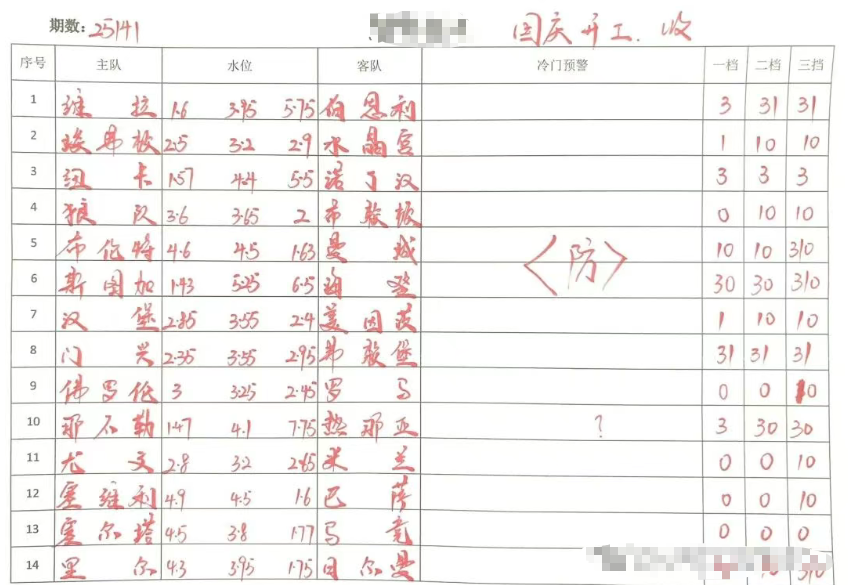 期数: 25141 国庆开工.收
序号 主队 水位 客队 冷门预警 一档 二档 三挡
1 维拉 1.6 3.95 5.75 伯恩利 3 31 31
2 埃弗顿 2.5 3.2 2.9 水晶宫 1 10 10
3 纽卡 1.57 4.4 5.5 诺丁汉 3 3 3
4 狼队 3.6 3.65 2 布敦顿 0 10 10
5 布伦特 4.6 4.5 1.63 曼城 <防> 10 10 310
6 斯图加 1.43 5.25 6.5 海登 30 30 310
7 汉堡 2.85 3.55 2.4 美因茨 1 10 10
8 门兴 2.35 3.55 2.95 弗敦堡 31 31 31
9 佛罗伦 3 3.25 2.45 罗马 0 0 10
10 那不勒 1.47 4.1 7.75 热那亚 ? 3 30 30
11 尤文 2.8 3.2 2.65 米兰 0 0 10
12 塞维利 4.9 4.5 1.6 巴萨 0 0 10
13 塞尔塔 4.5 3.8 1.77 马竞 0 0 0
14 里尔 4.3 3.95 1.75 日尔曼 310